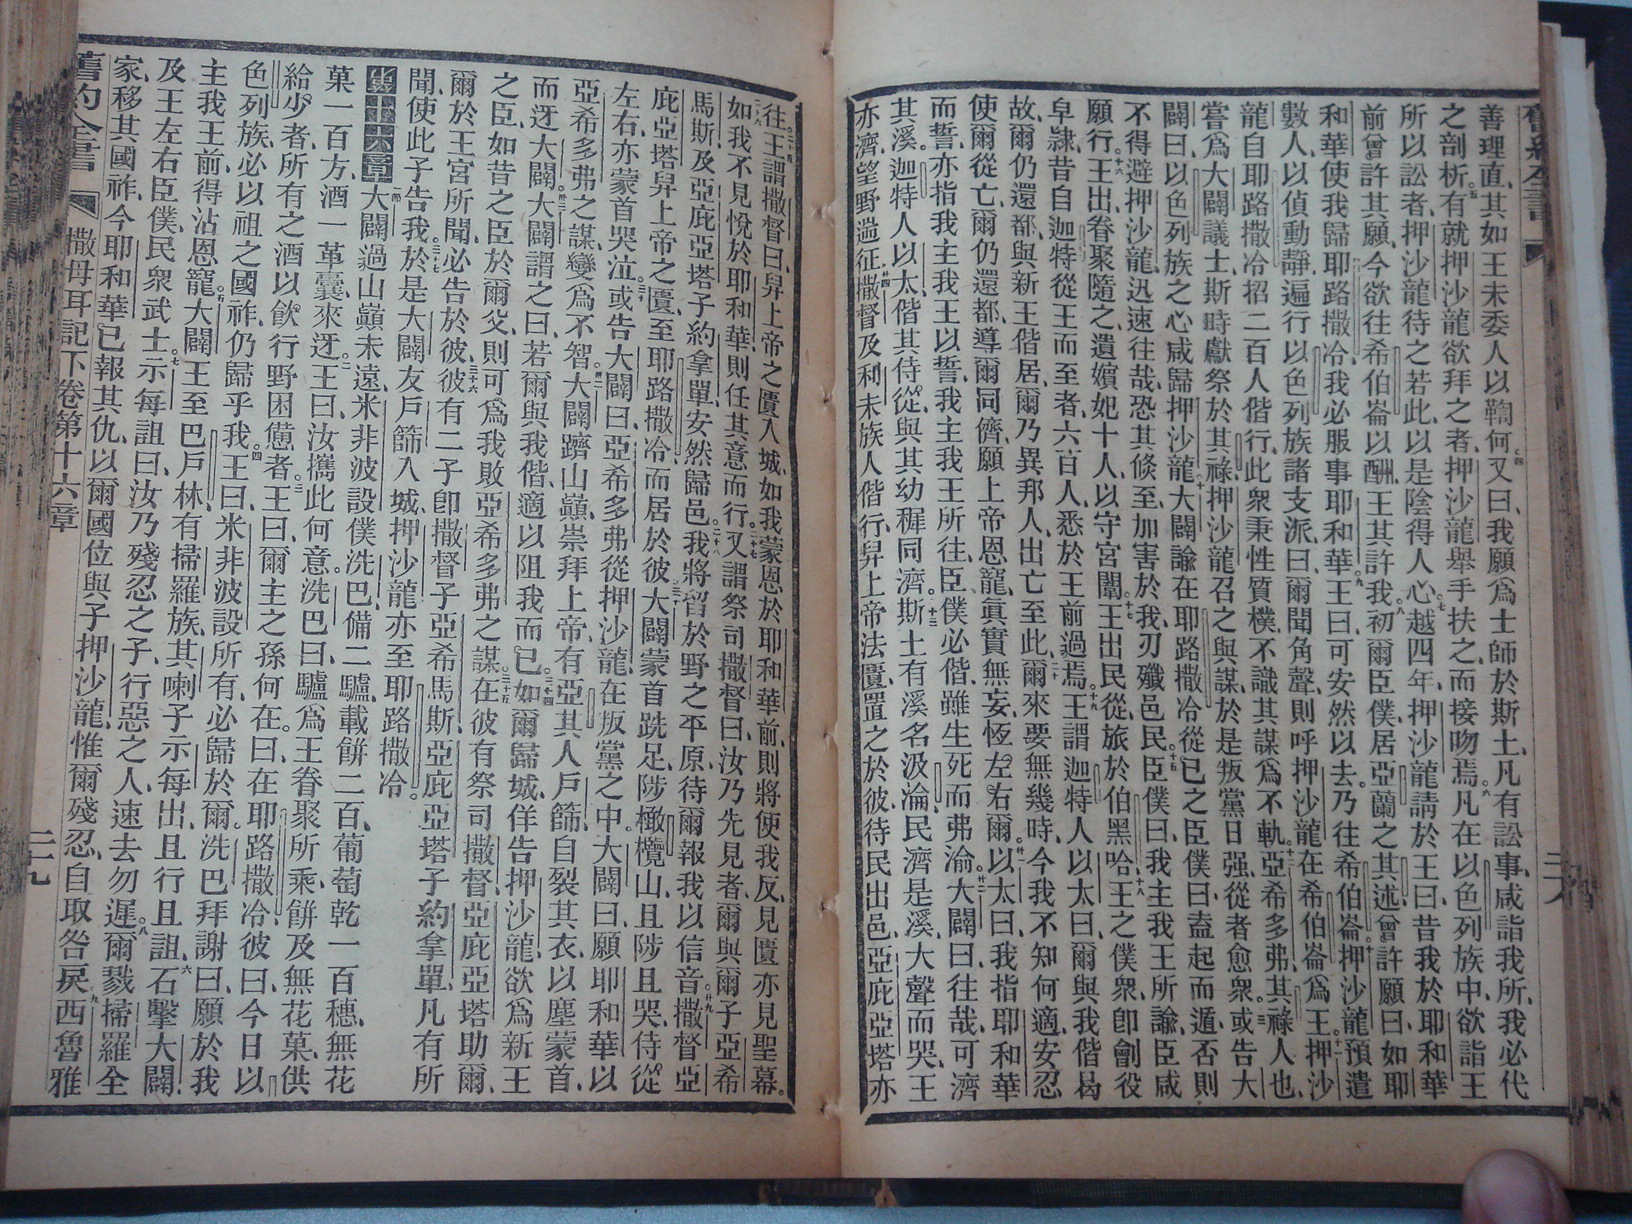 善理直其如王未委人以鞫何又曰我願爲士師於斯土凡有訟事咸詣我所我必代
之剖析有就押沙龍欲拜之者押沙龍舉手扶之而接吻焉凡在以色列族中欲詣王
所以訟者押沙龍待之若此以是陰得人心越四年押沙龍請於王曰昔我於耶和華
前曾許其願今欲往希伯崙以酬王其許我初爾臣僕居亞蘭之其述曾許願曰如耶
和華使我歸耶路撒冷我必服事耶和華王曰可安然以去乃往希伯崙押沙龍預遣
數人以偵動靜遍行以色列族諸支派曰爾聞角聲則呼押沙龍在希伯崙爲王押沙
龍自耶路撒冷招二百人偕行此衆秉性質樸不識其謀爲不軌亞希多弗其祿人也
嘗爲大闢議士斯時獻祭於其祿押沙龍召之與謀於是叛黨日强從者愈衆或告大
闢曰以色列族之心咸歸押沙龍大闢諭在耶路撒冷從己之臣僕曰盍起而遁否則
不得避押沙龍迅速往哉恐其倏至加害於我刃殲邑民臣僕曰我主我王所諭臣咸
願行王出眷聚隨之遺嬪妃十人以守宮闈王出民從旅於伯黑哈王之僕衆卽劊役
皁隸昔自迦特從王而至者六百人悉於王前過焉王謂迦特人以太曰爾與我偕曷
故爾仍還都與新王偕居爾乃異邦人出亡至此爾來要無幾時今我不知何適安忍
使爾從亡爾仍還都導爾同儕願上帝恩寵眞實無妄恆左右爾以太曰我指耶和華
而誓亦指我主我王以誓我主我王所往臣僕必偕雖生死而弗渝大闢曰往哉可濟
其溪迦特人以太偕其侍從與其幼穉同濟斯土有溪名汲淪民濟是溪大聲而哭王
亦濟望野遄征撒督及利未族人偕行舁上帝法匱置之於彼待民出邑亞庇亞塔亦
往王謂撒督曰舁上帝之匱入城如我蒙恩於耶和華前則將使我反見匱亦見聖幕
如我不見悅於耶和華則任其意而行又謂祭司撒督曰汝乃先見者爾與爾子亞希
馬斯及亞庇亞塔子約拿單安然歸邑我將留於野之平原待爾報我以信音撒督亞
庇亞塔舁上帝之匱至耶路撒冷而居於彼大闢蒙首跣足陟橄欖山且陟且哭侍從
左右亦蒙首哭泣或告大闢曰亞希多弗從押沙龍在叛黨之中大闢曰願耶和華以
亞希多弗之謀變爲不智大闢躋山巔崇拜上帝有亞其人戶篩自裂其衣以塵蒙首
而迓大闢大闢謂之曰若爾與我偕適以阻我而已如爾歸城佯告押沙龍欲爲新王
之臣如昔之臣於爾父則可爲我敗亞希多弗之謀在彼有祭司撒督亞庇亞塔助爾
爾於王宮所聞必告於彼彼有二子卽撒督子亞希馬斯亞庇亞塔子約拿單凡有所
聞使此子告我於是大闢友戶篩入城押沙龍亦至耶路撒冷
第十六章大闢過山巔未遠米非波設僕洗巴備二驢載餅二百葡萄乾一百穗無花
菓一百方酒一革囊來迓王曰汝攜此何意洗巴曰驢爲王眷聚所乘餅及無花菓供
給少者所有之酒以飲行野困憊者王曰爾主之孫何在曰在耶路撒冷彼曰今日以
色列族必以祖之國祚仍歸乎我王曰米非波設所有必歸於爾洗巴拜謝曰願於我
主我王前得沾恩寵大闢王至巴戶林有掃羅族其喇子示每出且行且詛石擊大闢
及王左右臣僕民衆武士示每詛曰汝乃殘忍之子行惡之人速去勿遲爾戮掃羅全
家移其國祚今耶和華已報其仇以爾國位與子押沙龍惟爾殘忍自取咎戾西魯雅
舊約全書 撒母耳記下卷第十六章 二十九